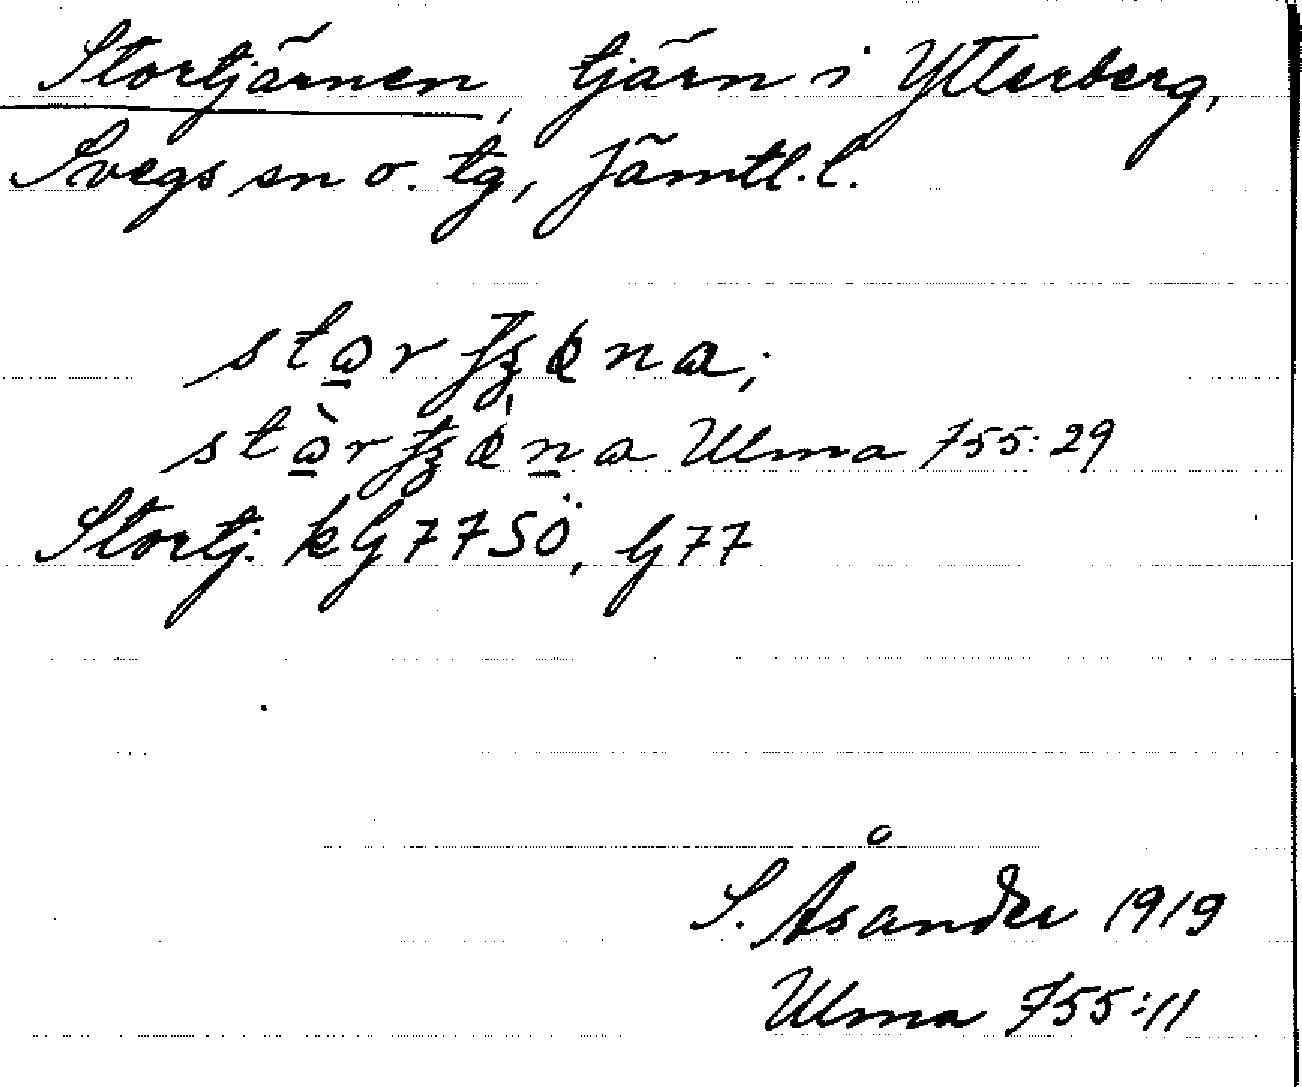 Stortjärnen, tjärn i Ytterberg,
Svegs sn o. tg, Jämtl. l.
Ulma 755:29
Stortj. kG77SÖ, G77
S. Åsander 1919
Ulma 755:11